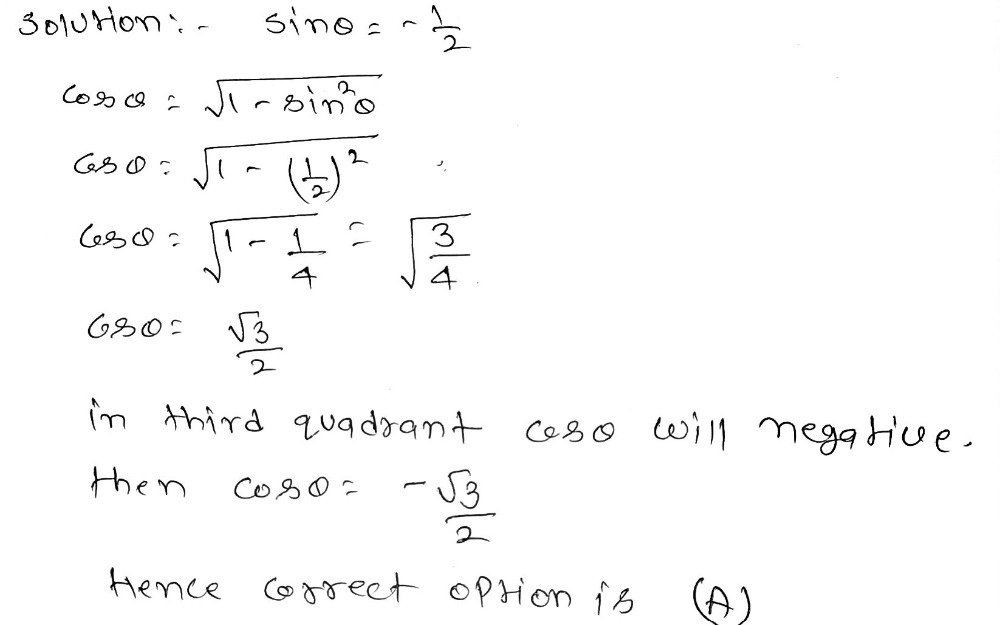 Solution:- sinθ = -1/2
cosθ = √(1 - sin²θ)
cosθ = √(1 - (1/2)²)
cosθ = √(1 - 1/4) = √(3/4)
cosθ = √3/2
in third quadrant cosθ will negative.
then cosθ = -√3/2
Hence correct option is (A)